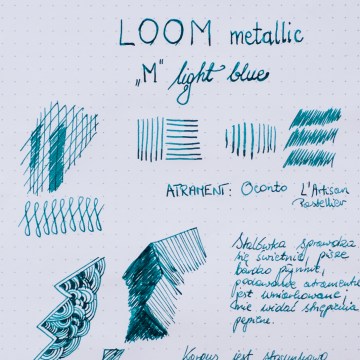 LOOM metallic
„M" light blue
ATRAMENT: Oconto L'Artisan
Pastellier
Stalówka sprawdza
się świetnie, pisze
bardzo płynnie,
podawanie atramentu
jest umiarkowane,
nie widać strzępienia
papieru.
Korpus jest stosunkowo